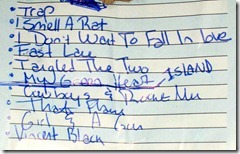 Trap
I Smell A Rat
I Don't Want To Fall In love
East Lay
Tangled The Two
My Heart ISLAND
Cowboys &
That's
Girl & A Gun
Vincent Black